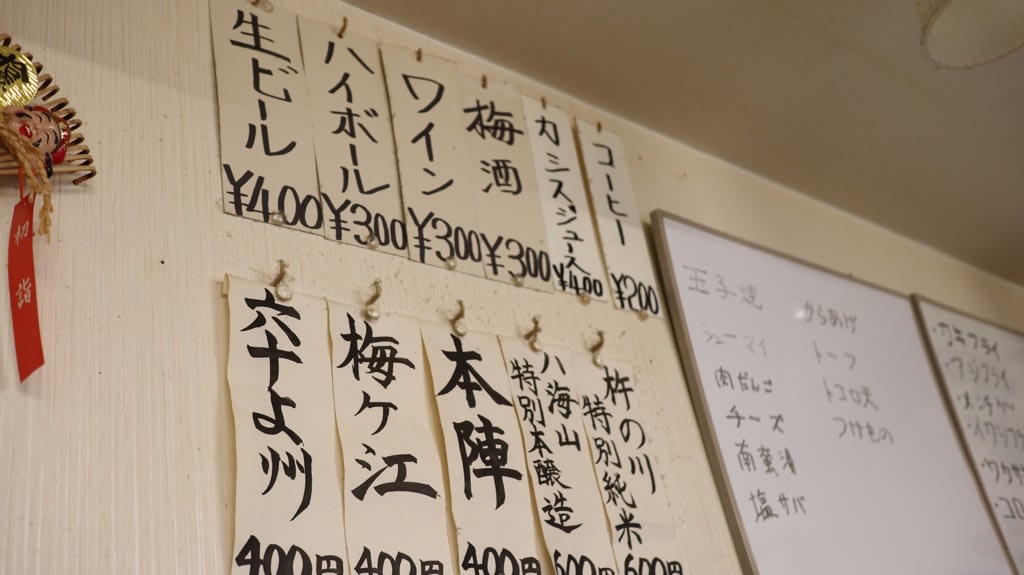 生ビール ¥400
ハイボール ¥300
ワイン ¥300
梅酒 ¥300
カシスジュース ¥400
コーヒー ¥200
六十よ州 400円
梅ケ江 400円
本陣 400円
八海山 特別本醸造 600円
杵の川 特別純米 600円
初詣
玉子焼
シューマイ
肉だんご
チーズ
南蛮漬
塩サバ
からあげ
トーフ
トコロ天
つけもの
・アジフライ
・メンチカ